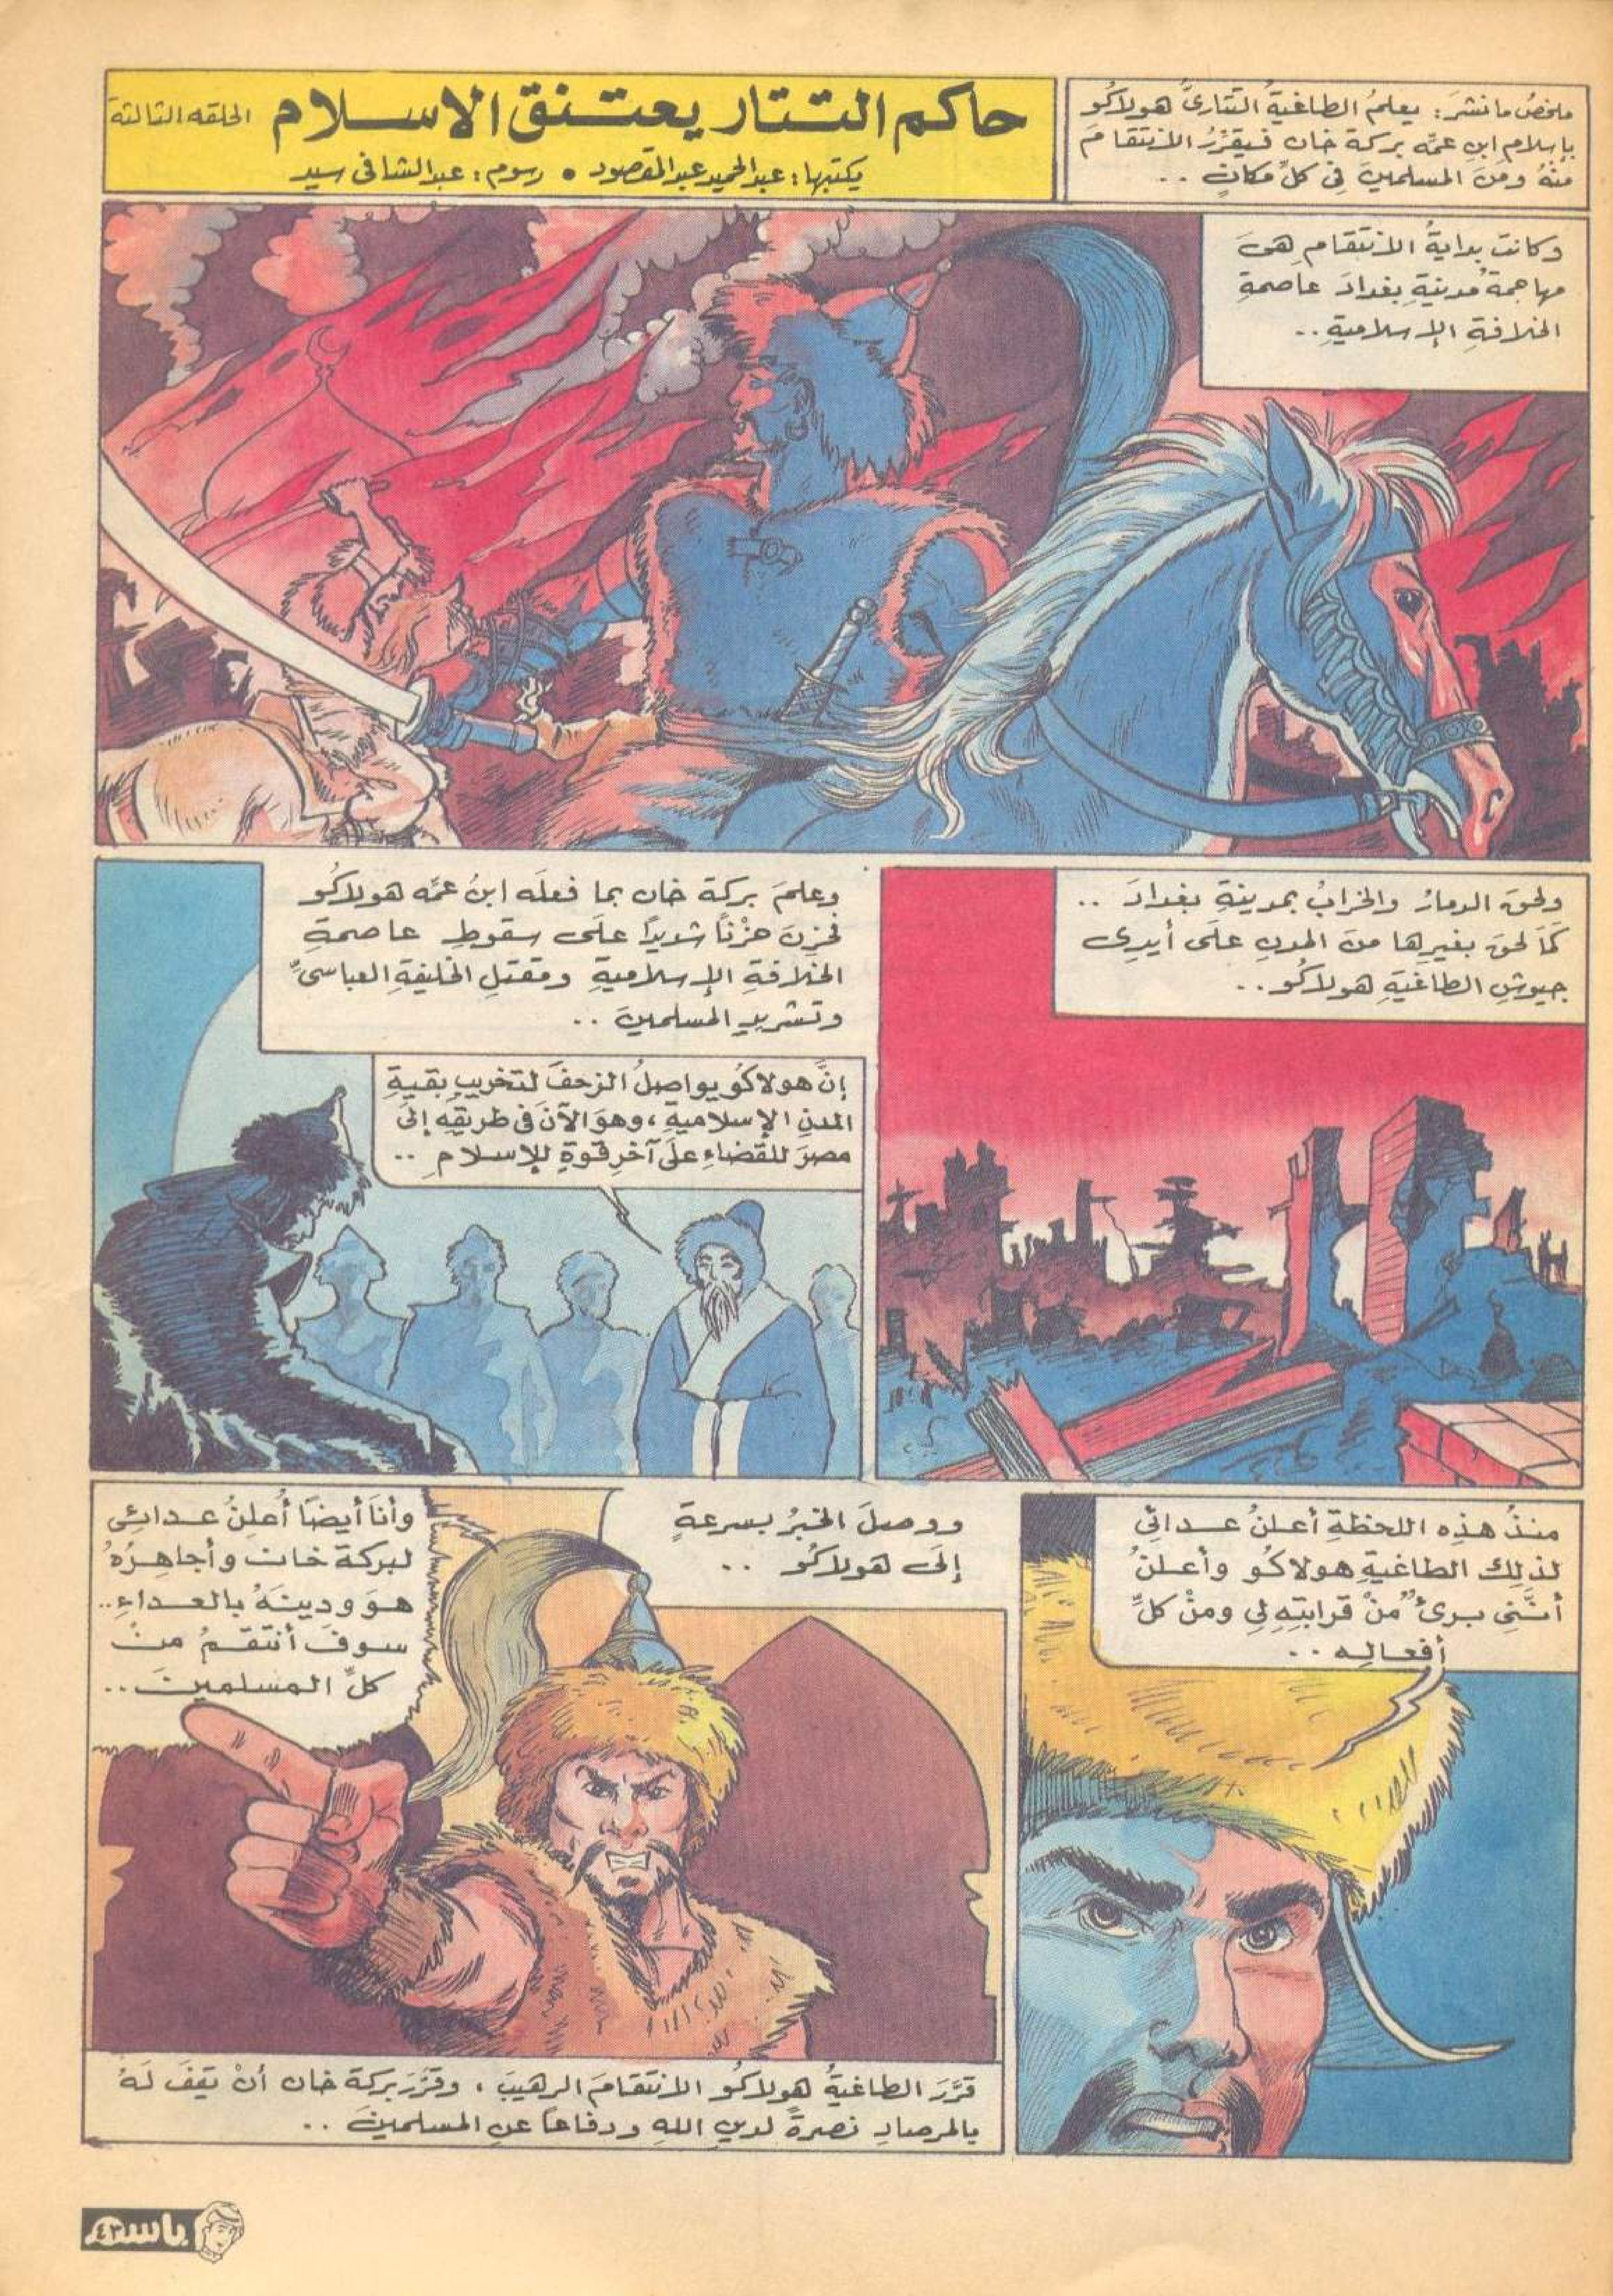 ملخصُ ما نشرَ: يعلمُ الطاغيةُ التتارىُّ هولاكو
بإسلامِ ابنِ عمِّه بركة خان فيقرِّرُ الانتقامَ
منهُ ومنَ المسلمينَ فى كلِّ مكانٍ ..
حاكم التتار يعتنق الاسلام
الحلقه الثالثة
يكتبها: عبدالحميد عبدالمقصود • رسوم: عبدالشافى سيد
وكانت بدايةُ الانتقامِ هىَ
مهاجمةُ مدينةِ بغدادَ عاصمةِ
الخلافةِ الإسلاميةِ..
ولحقَ الدمارُ والخرابُ بمدينةِ بغدادَ ..
كمَا لحقَ بغيرِها منَ المدنِ علَى أيدِى
جيوشِ الطاغيَةِ هولاكُو..
وعلمَ بركة خان بما فعلَه ابنُ عمِّه هولاكُو
فحزِنَ حزْنًا شديدًا علَى سقوطِ عاصمةِ
الخلافةِ الإسلاميةِ ومقتلِ الخليفةِ العباسىِّ
وتشريدِ المسلمينَ ..
إنَّ هولاكُو يواصِلُ الزحفَ لتخريبِ بقيةِ
المدنِ الإسلاميةِ، وهوَ الآنَ فى طريقِه إلَى
مصرَ للقضاءِ علَى آخرِ قوةٍ للإسلامِ ..
منذُ هذِه اللحظةِ أعلنُ عدائِى
لذلك الطاغيةِ هولاكُو وأعلنُ
أنَّنِى برىءٌ منْ قرابتِه لِى ومنْ كلِّ
أفعالِه ..
ووصلَ الخبرُ بسرعةٍ
إلَى هولاكُو ..
وأنَا أيضًا أُعلِنُ عدائِى
لبركة خان وأجاهِرُهُ
هوَ ودينَهُ بالعداءِ..
سوفَ أنتقمُ منْ
كلِّ المسلمينَ..
قرَّرَ الطاغيةُ هولاكُو الانتقامَ الرهيبَ، وقرَّرَ بركة خان أنْ يقِفَ لَهُ
بالمرصادِ نصرةً لدينِ اللهِ ودفاعًا عنِ المسلمينَ ..
باسم
٤٣